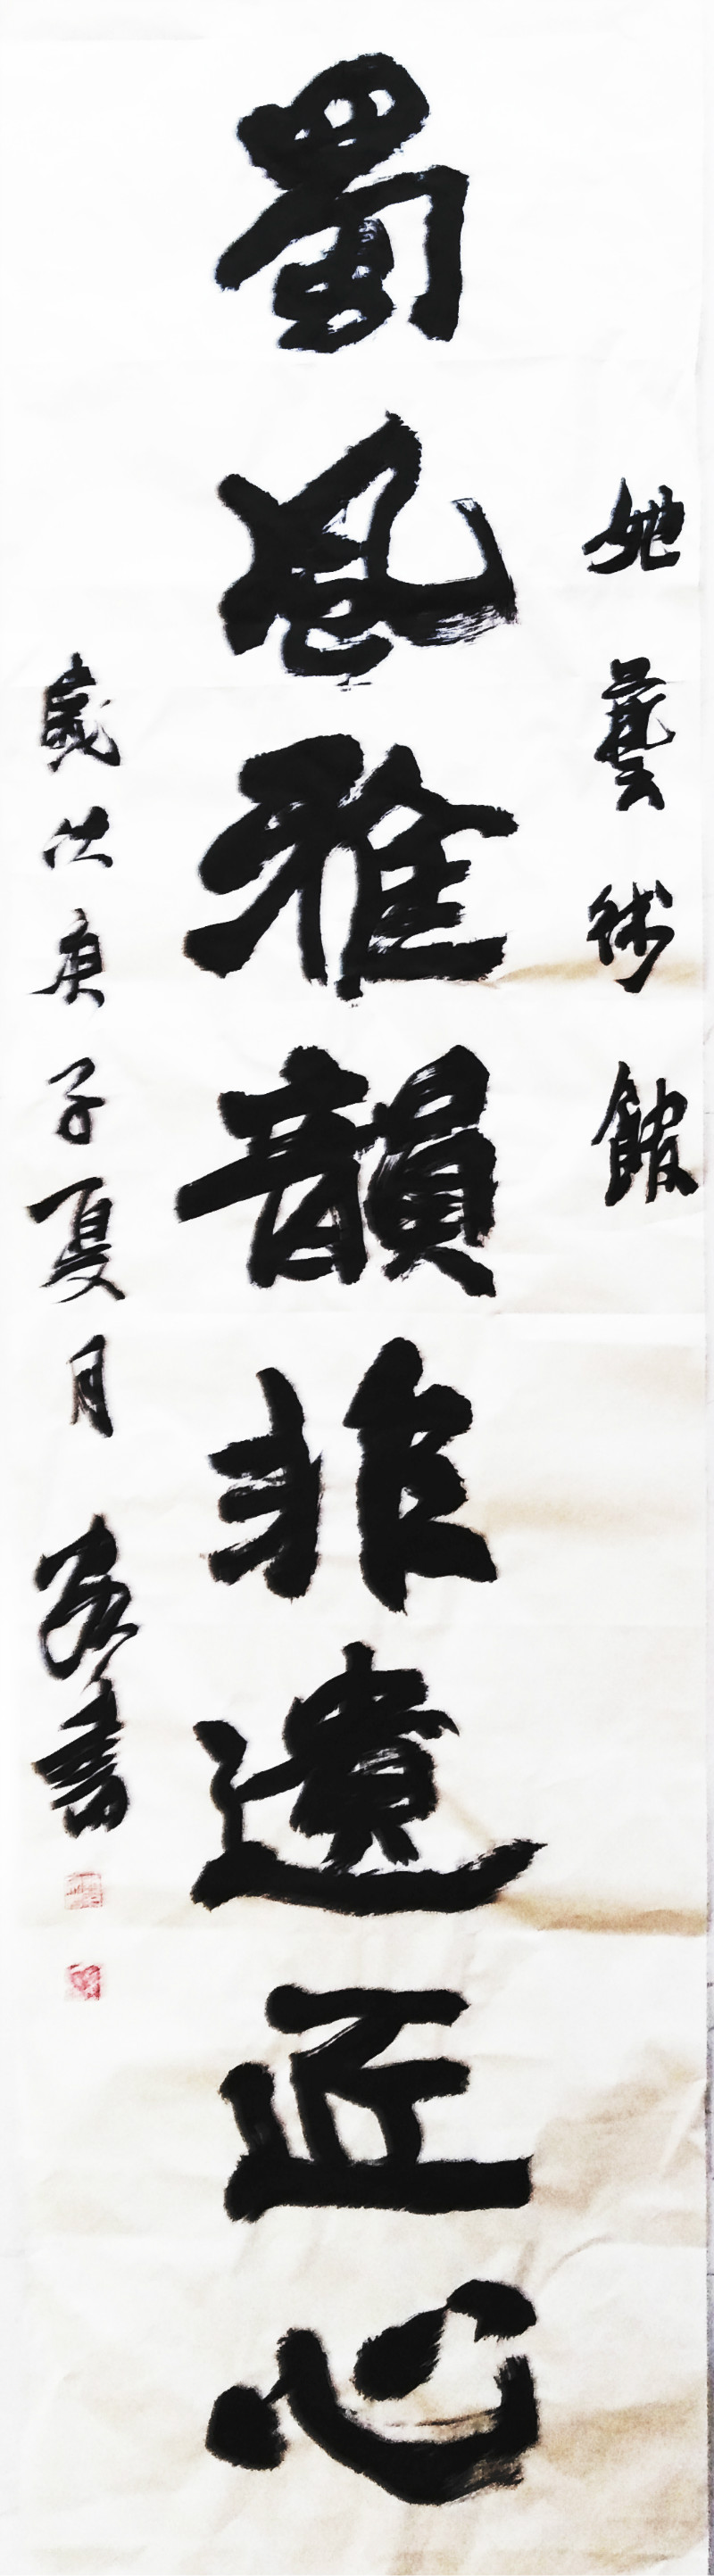 她藝術館
蜀風雅韻非遺匠心
歲次庚子夏月
書